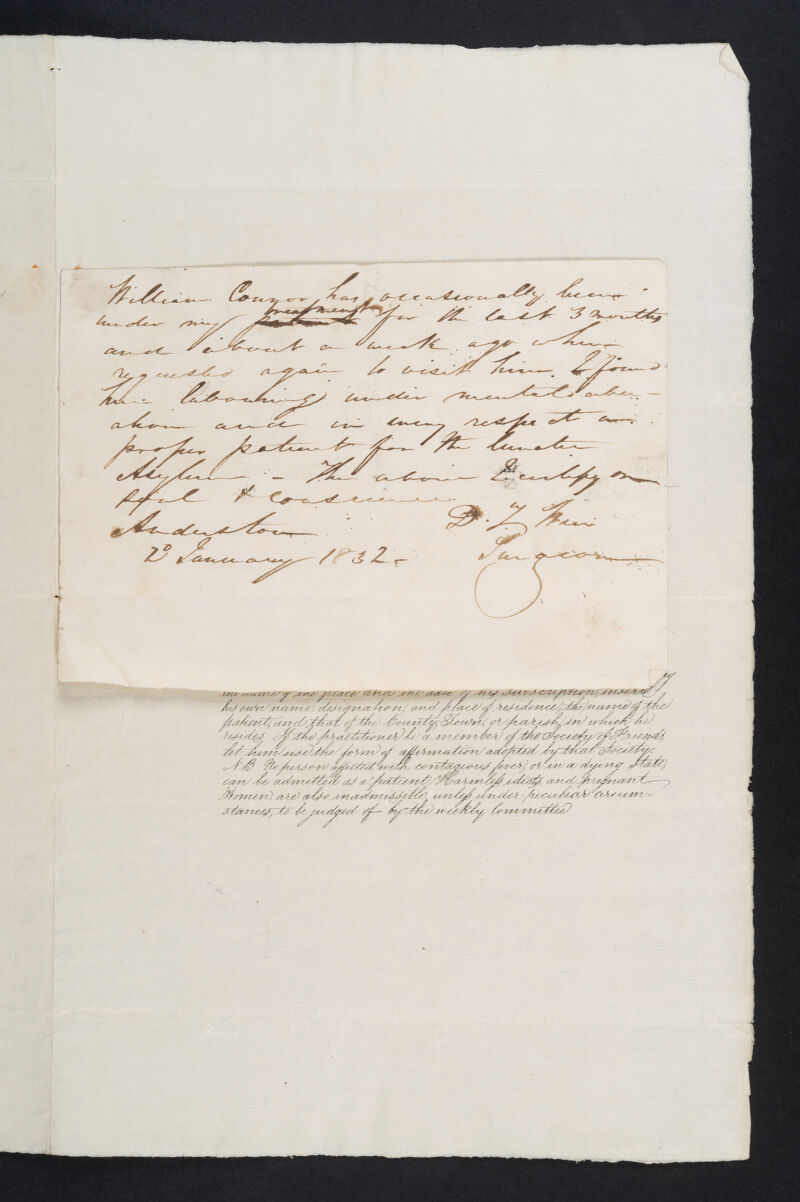 William Connor has occasionally been
under my treatment for the last 3 months
and about a week ago when
requested again to visit him I found
him labouring under mental aber-
ation and in every respect a
proper patient for the lunatic
Asylum – The above I certify on
soul & conscience
Anderston D. Weir
2d January 1832. Surgeon
the name of the place and the date of his subscription, insert
his own name, designation, and place of residence, the name of the
patient, and that of the County, Town, or parish, in which he
resides. If the practitioner be a member of the Society of Friends
let him use the form of affirmation adopted by that Society.
N.B. No person affected with contagious fever, or in a dying state,
can be admitted as a patient, Harmless idiots, and pregnant
Women, are also inadmissible, unless under peculiar circum-
stances, to be judged of by the weekly Committee